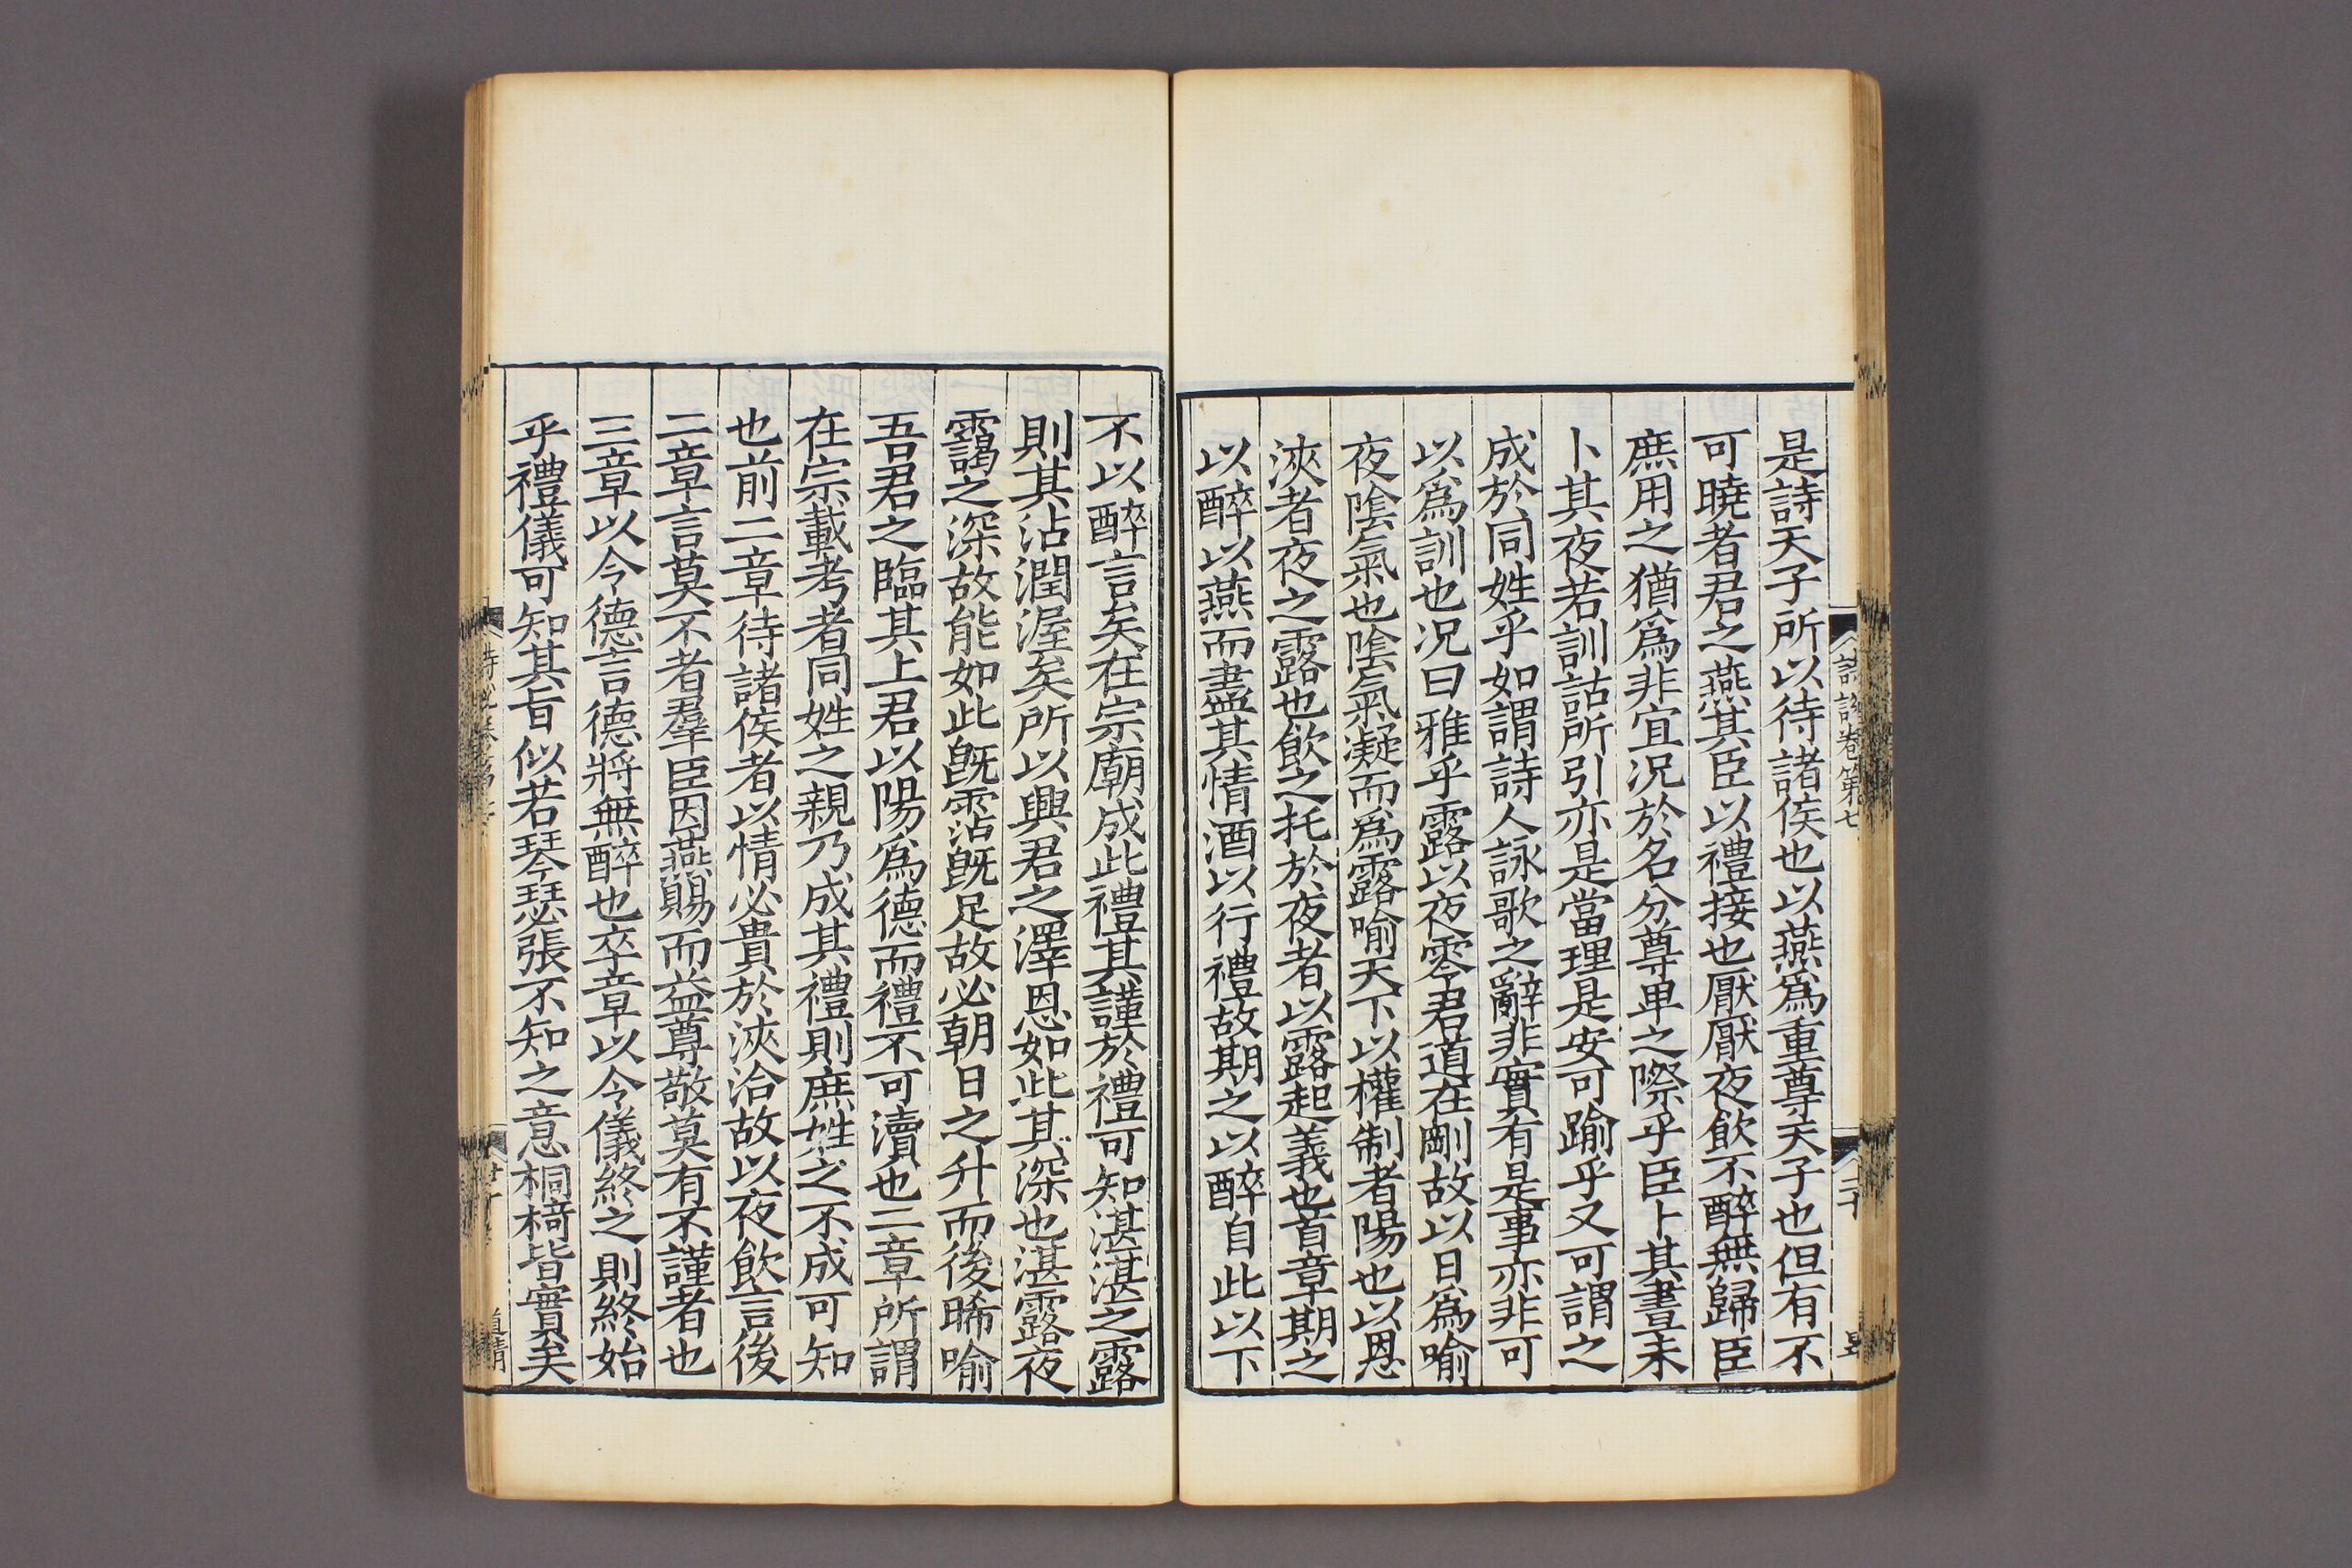 詩說卷第七
二十
是詩天子所以待諸侯也以燕爲重尊天子也但有不
可曉者君之燕其臣以禮接也厭厭夜飲不醉無歸臣
庶用之猶爲非宜况於名分尊卑之際乎臣卜其晝未
卜其夜若訓詁所引亦是當理是安可踰乎又可謂之
成於同姓乎如謂詩人詠歌之辭非實有是事亦非可
以爲訓也况曰雅乎露以夜零君道在剛故以日爲喻
夜陰氣也陰氣凝而爲露喻天下以權制者陽也以恩
浹者夜之露也飲之托於夜者以露起義也首章期之
以醉以燕而盡其情酒以行禮故期之以醉自此以下
不以醉言矣在宗廟成此禮其謹於禮可知湛湛之露
則其沾潤渥矣所以興君之澤恩如此其深也湛露夜
靄之深故能如此旣霑旣足故必朝日之升而後晞喻
吾君之臨其上君以陽爲德而禮不可瀆也二章所謂
在宗載考者同姓之親乃成其禮則庶姓之不成可知
也前二章待諸侯者以情必貴於浹洽故以夜飲言後
二章言莫不者羣臣因燕賜而益尊敬莫有不謹者也
三章以令德言德將無醉也卒章以令儀終之則終始
乎禮儀可知其旨似若琴瑟張不知之意桐椅皆實矣